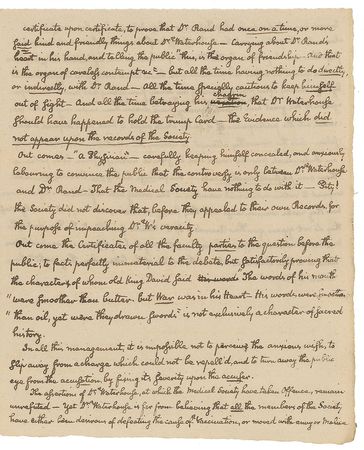 certificate upon certificate, to prove, that Dr Rand had once on a time, or more
said kind and friendly things about Dr Waterhouse — Carrying about Dr Rand's
heart in his hand, and telling the public "this, is the organ of friendship. And that
is the organ of cavaless contempt &c" — but all the time having nothing to do directly,
or indirectly, with Dr Rand — All the time specially cautious to keep himself
out of sight — And all the time betraying his chagrin, that Dr Waterhouse
should have happened to hold the trump card — the Evidence which did
not appear upon the records of the Society
Out comes — "a Physician" — carefully keeping himself concealed, and anxiously
labouring to convince the public that the controversy is only between Dr Waterhouse
and Dr Rand — That the Medical Society have nothing to do with it — Pity!
the Society did not discover that, before they appealed to their own Records, for
the purpose of impeaching Dr W's veracity
Out come the Certificates of all the faculty parties to the question before the
public; to facts, perfectly immaterial to the debate, but satisfactorily proving that
the character, of whom old King David said The words of his mouth
"were smoother than butter, but War was in his Heart — His words were smoother
"than oil, yet were they drawn swords" is not exclusively a character of sacred
history.
In all this management, it is impossible not to perceive the anxious wish, to
slip away from a charge which could not be repell'd, and to turn away the public
eye from the accusation, by fixing its severity upon the accuser.
The assertion of Dr Waterhouse, at which the Medical Society have taken offence, remain
unrefuted — Yet Dr Waterhouse is far from believing that all the members of the Society,
have either been desirous of defeating the cause of Vaccination, or moved with envy or malice